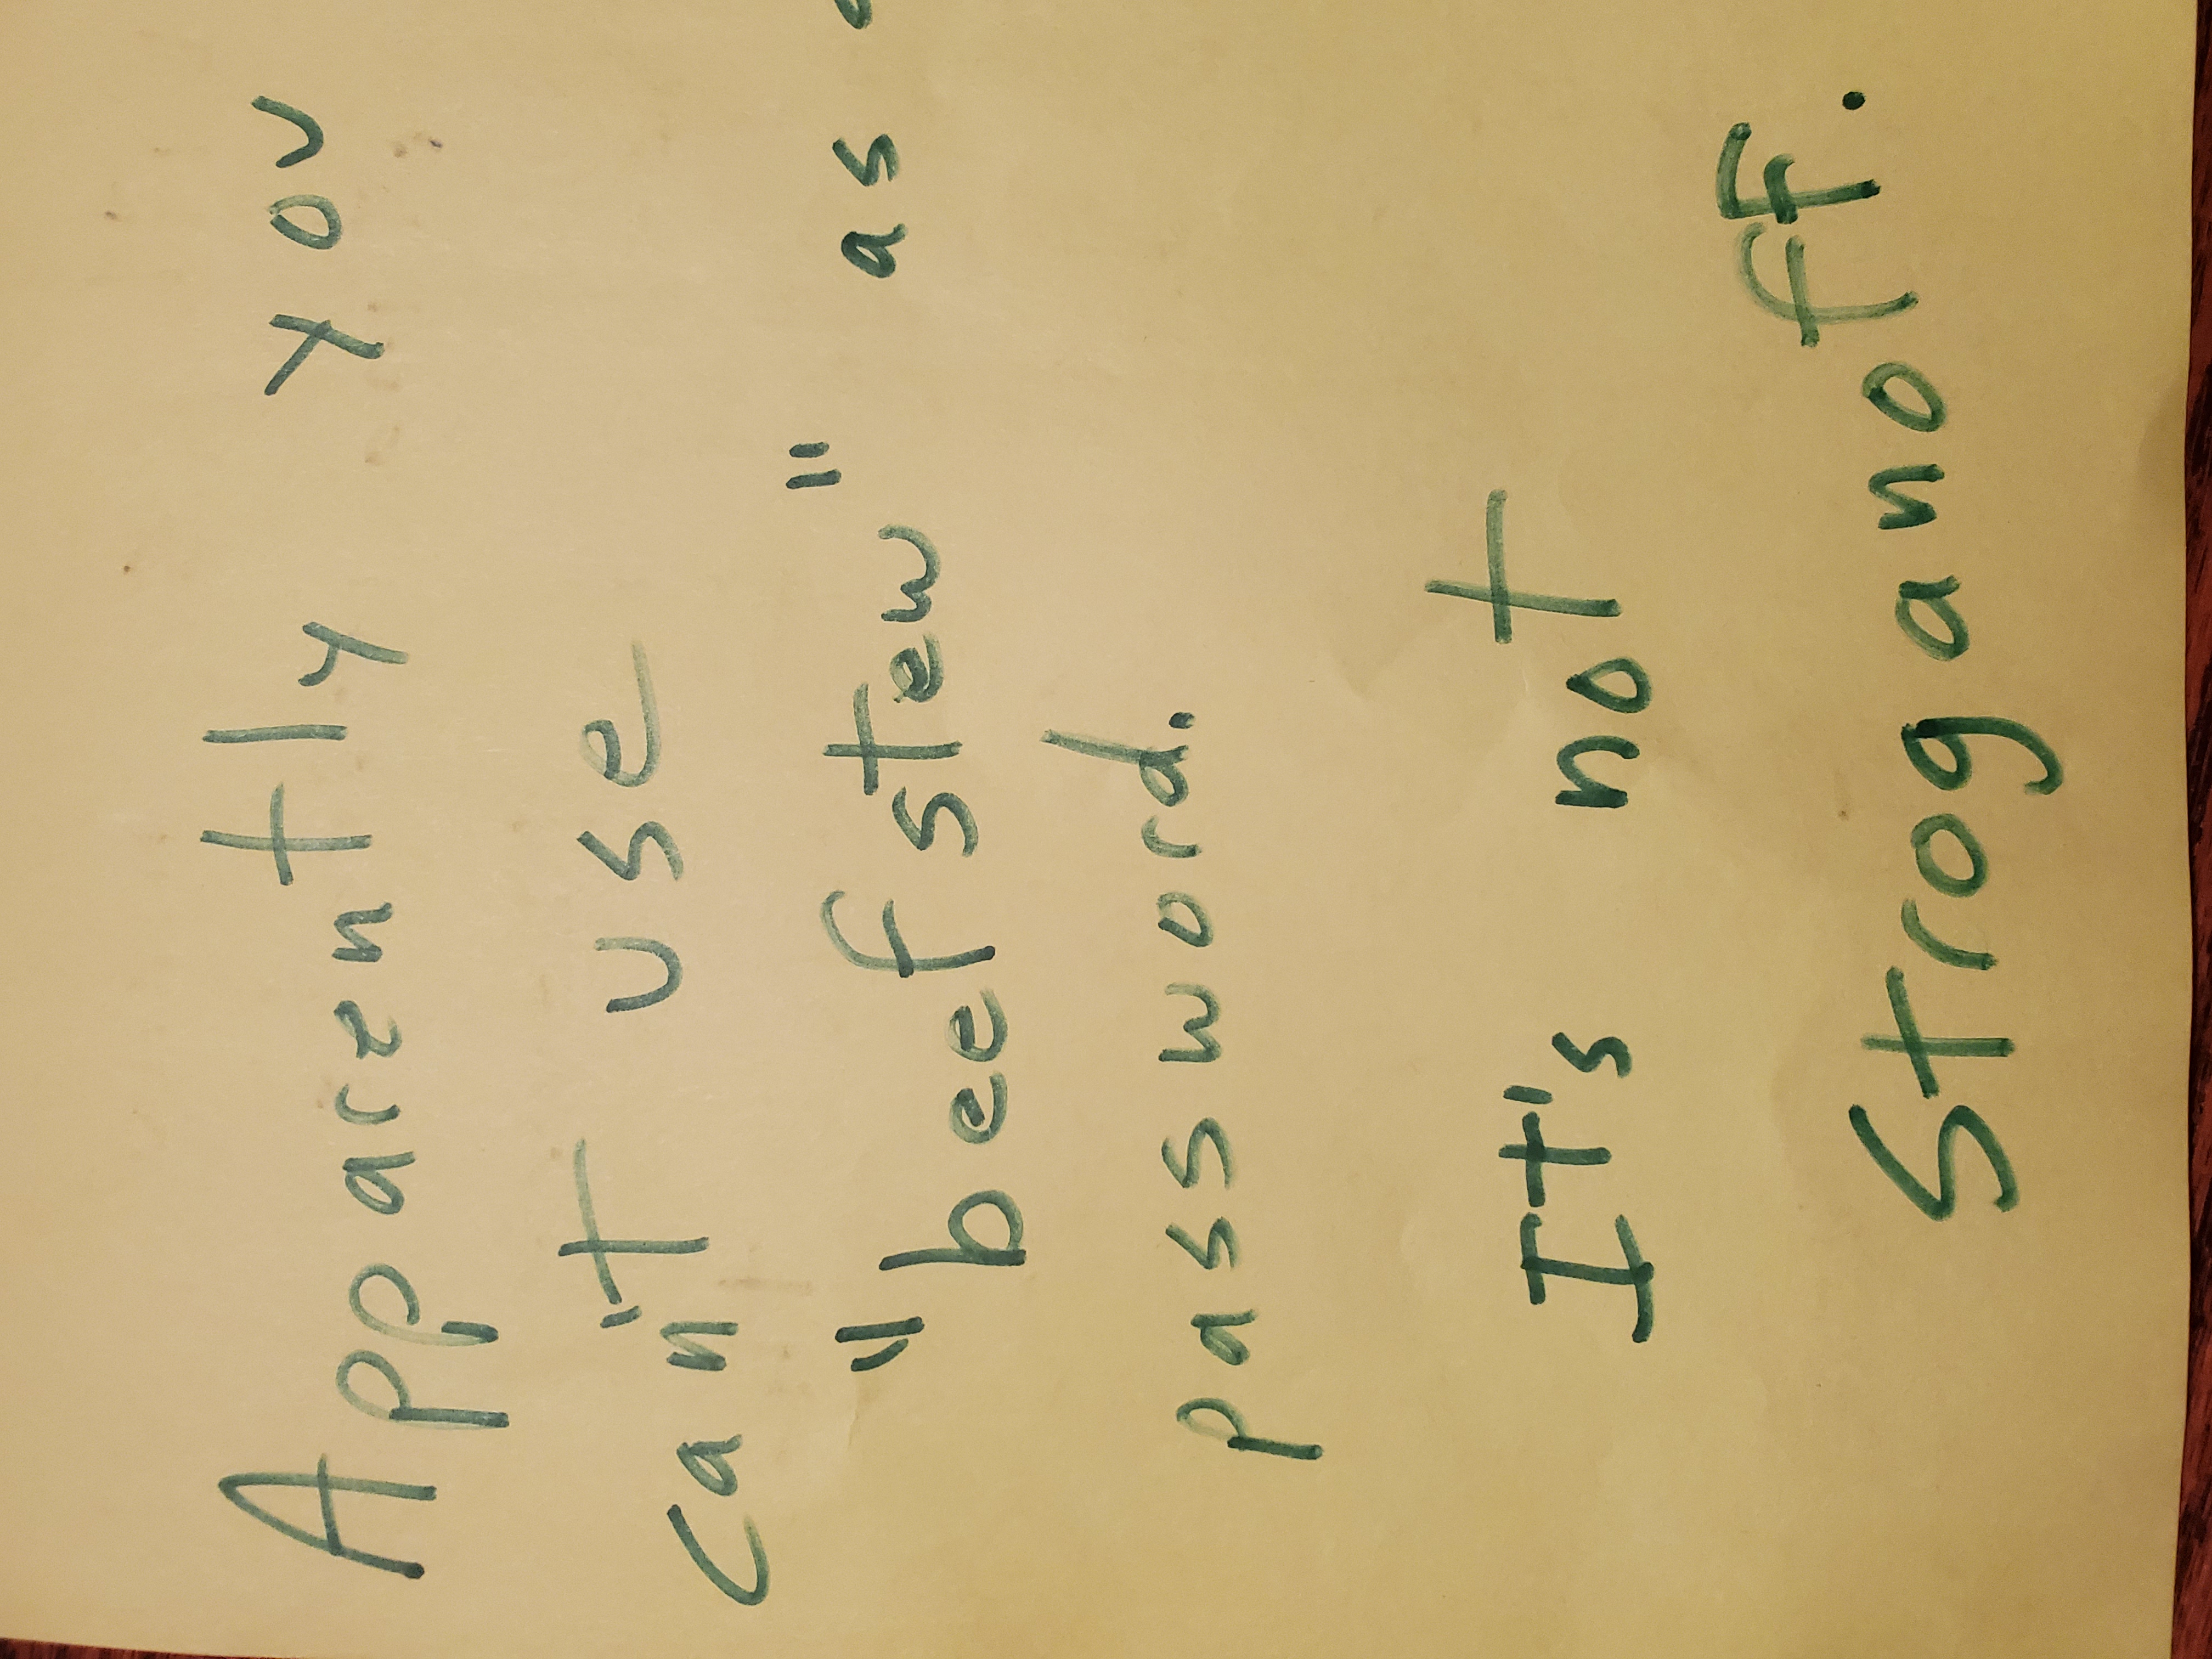 Apparently you
can't use
"beef stew" as
password.
It's not
Stroganoff.